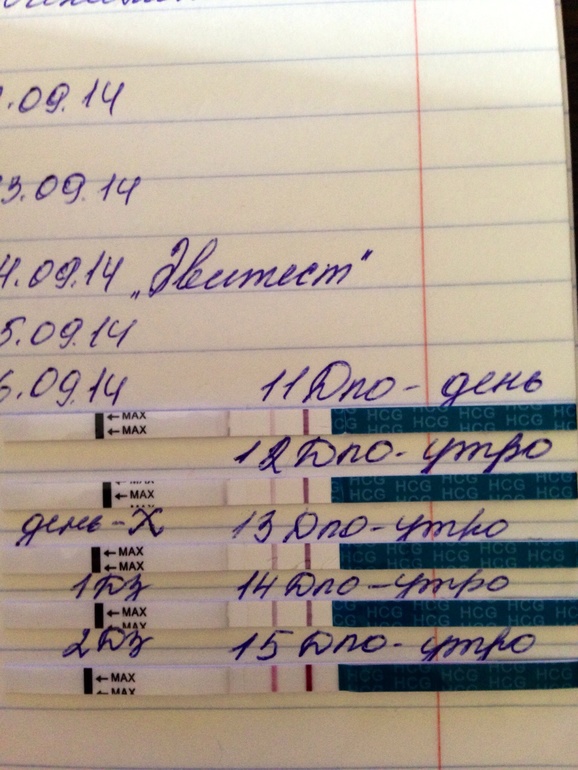 .09.14
3.09.14
4.09.14 „Эвитест"
5.09.14
6.09.14
11 Дпо - день
←MAX
←MAX
HCG HCG HCG HCG
12 Дпо - утро
←MAX
HCG HCG HCG HCG
день-Х 13 Дпо - утро
←MAX
←MAX
HCG HCG HCG HCG
1 Дз 14 Дпо - утро
←MAX
HCG HCG HCG HCG
2 Дз 15 Дпо - утро
←MAX
←MAX
HCG HCG HCG HCG